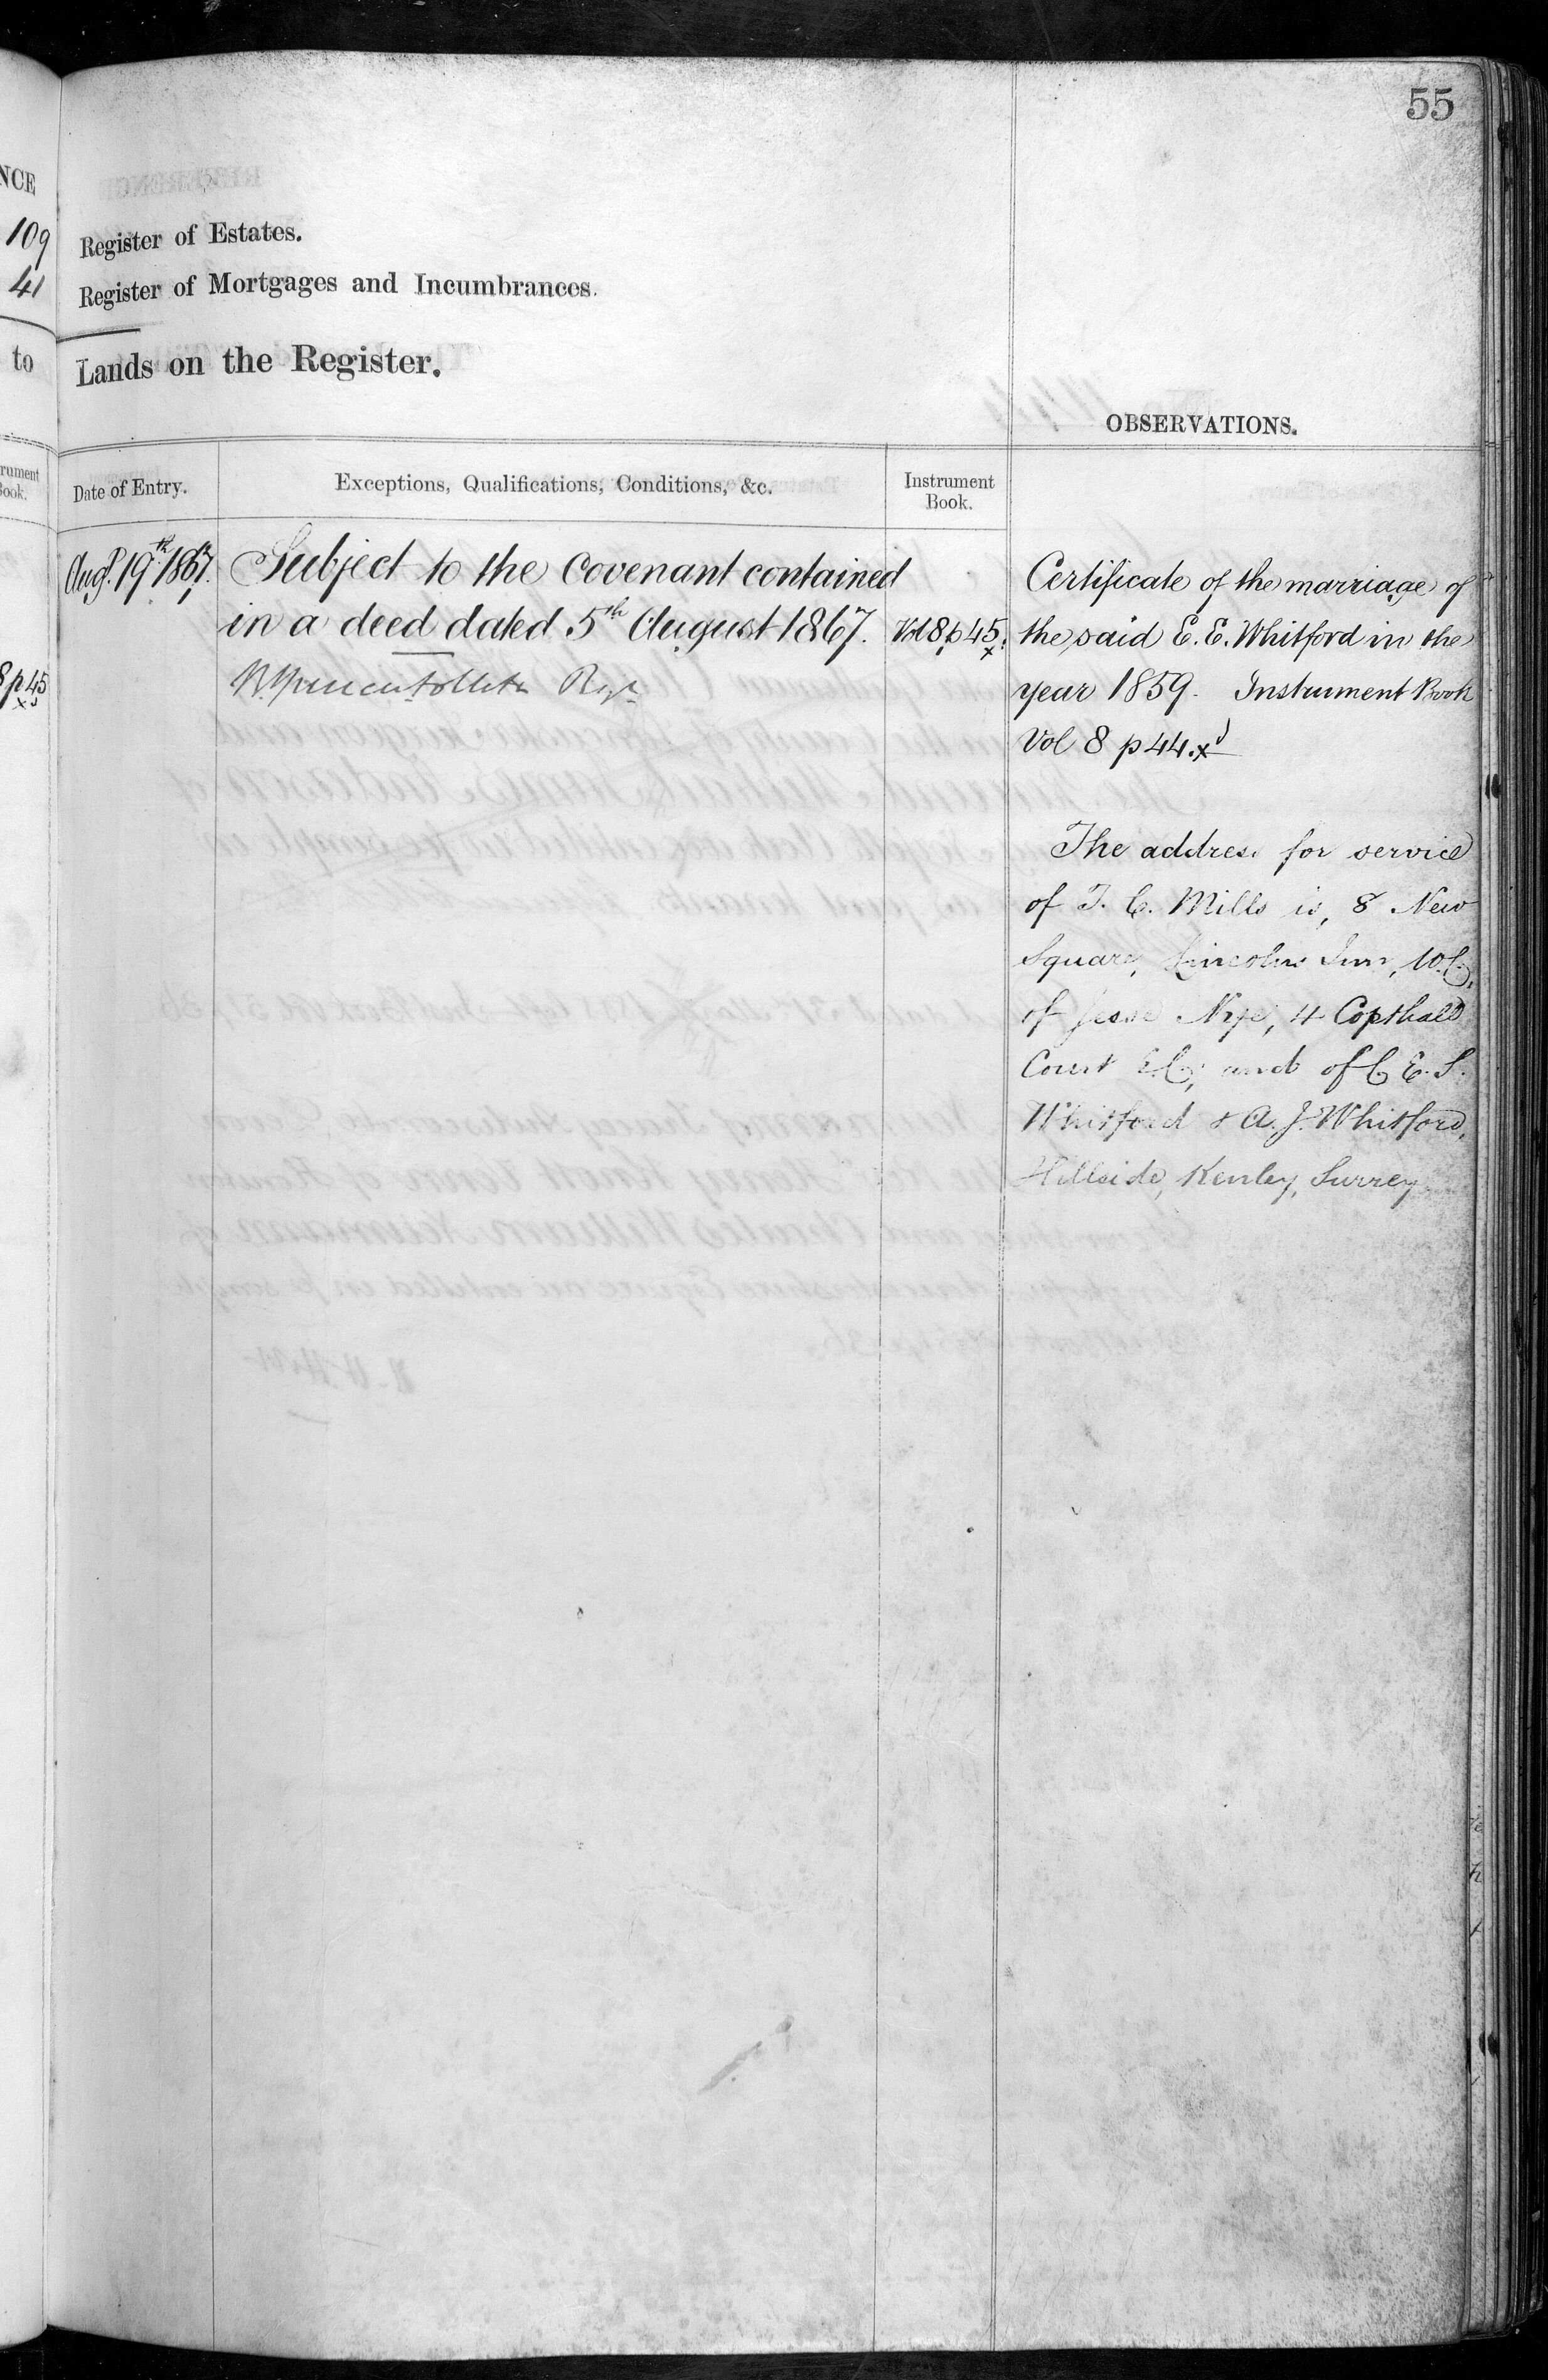 55
NCE
109
41
to
Register of Estates.
Register of Mortgages and Incumbrances.
Lands on the Register.
OBSERVATIONS.
rument
Book.
Date of Entry.
Exceptions, Qualifications, Conditions, &c.
Instrument
Book.
Augt. 19th 1867.
Subject to the Covenant contained
in a deed dated 5th August 1867.
Vol 8 p 45
8 p 45
Certificate of the marriage of
the said E. E. Whitford in the
year 1859. Instrument Book
Vol 8 p 44.
The address for service
of T. C. Mills is, 8 New
Square, Lincolns Inn, W.C,
of Jesse Nye, 4 Copthall
Court E.C; and of C. E. S.
Whitford & A. J. Whitford,
Hillside, Kenley, Surrey